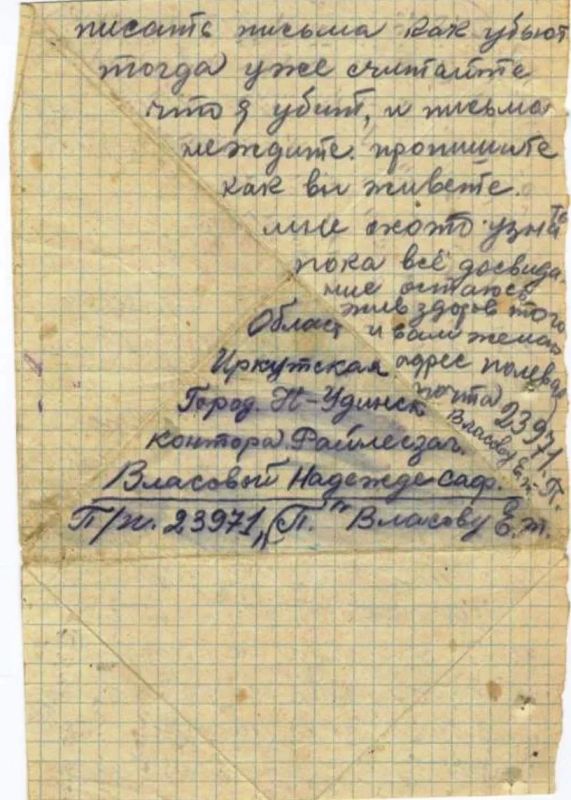 писать письма как убьют
тогда уже считайте
что я убит, и письма
неждите. пропишите
как вы живете.
мне охото узнать
пока всё досвида-
ние остаюсь
жив здоров того
и вам желаю
адрес полевая
почта 23971-П.
Власову Е. т.
Област
Иркутская
Город. Н-Удинск
контора Райлесзаг.
Власовый Надежде саф.
П/п. 23971 „П." Власову Е. т.